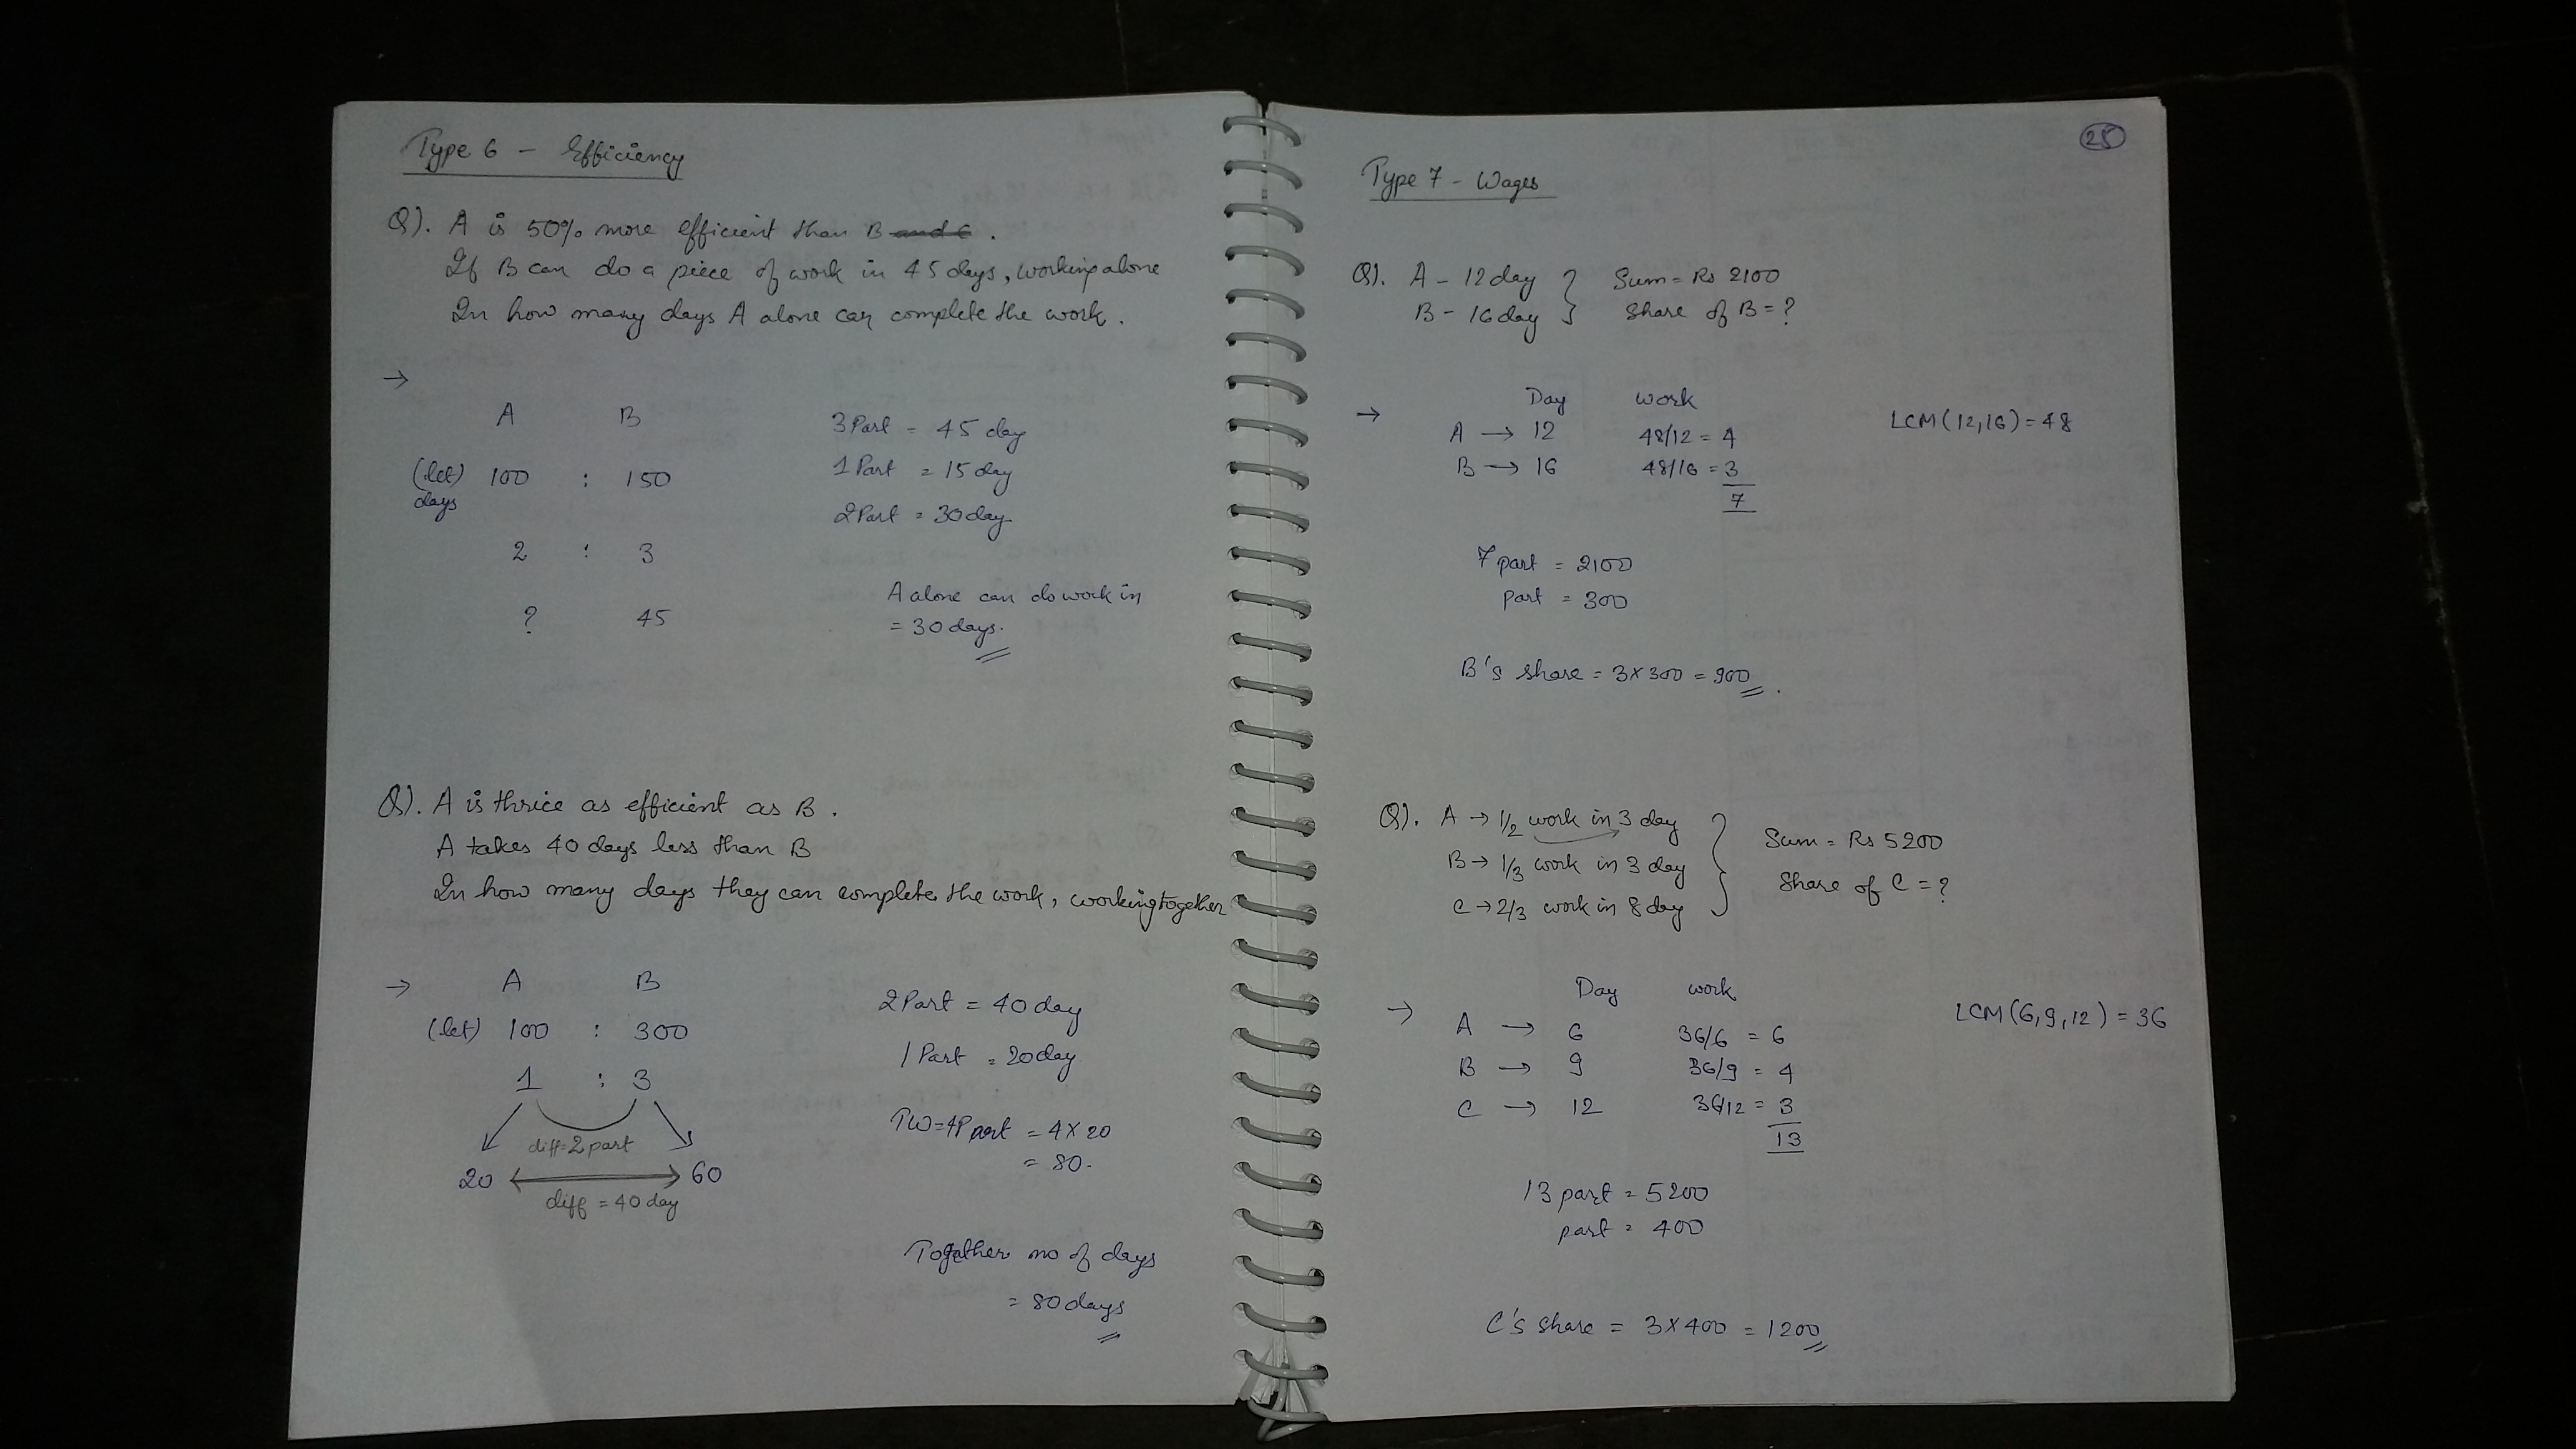 Type 6 - Efficiency
Q). A is 50% more efficient than B and C .
If B can do a piece of work in 45 days, working alone
In how many days A alone can complete the work .
→
A B
(let) days 100 : 150
2 : 3
? 45
3 Part = 45 day
1 Part = 15 day
2 Part = 30 day
A alone can do work in
= 30 days.
Q). A is thrice as efficient as B .
A takes 40 days less than B
In how many days they can complete the work, working together
→ A B
(let) 100 : 300
1 : 3
diff=2 part
20 60
diff = 40 day
2 Part = 40 day
1 Part = 20 day
TW=4Part = 4 X 20
= 80.
Together no of days
= 80 days
25
Type 7 - Wages
Q). A - 12 day } Sum = Rs 2100
B - 16 day Share of B = ?
→ Day work
A → 12 48/12 = 4
B → 16 48/16 = 3
7
LCM(12,16) = 48
7 part = 2100
part = 300
B's share = 3 X 300 = 900 .
Q). A → 1/2 work in 3 day
B → 1/3 work in 3 day
C → 2/3 work in 8 day
} Sum = Rs 5200
Share of C = ?
→ Day work
A → 6 36/6 = 6
B → 9 36/9 = 4
C → 12 36/12 = 3
13
LCM(6,9,12) = 36
13 part = 5200
part = 400
C's share = 3 X 400 = 1200